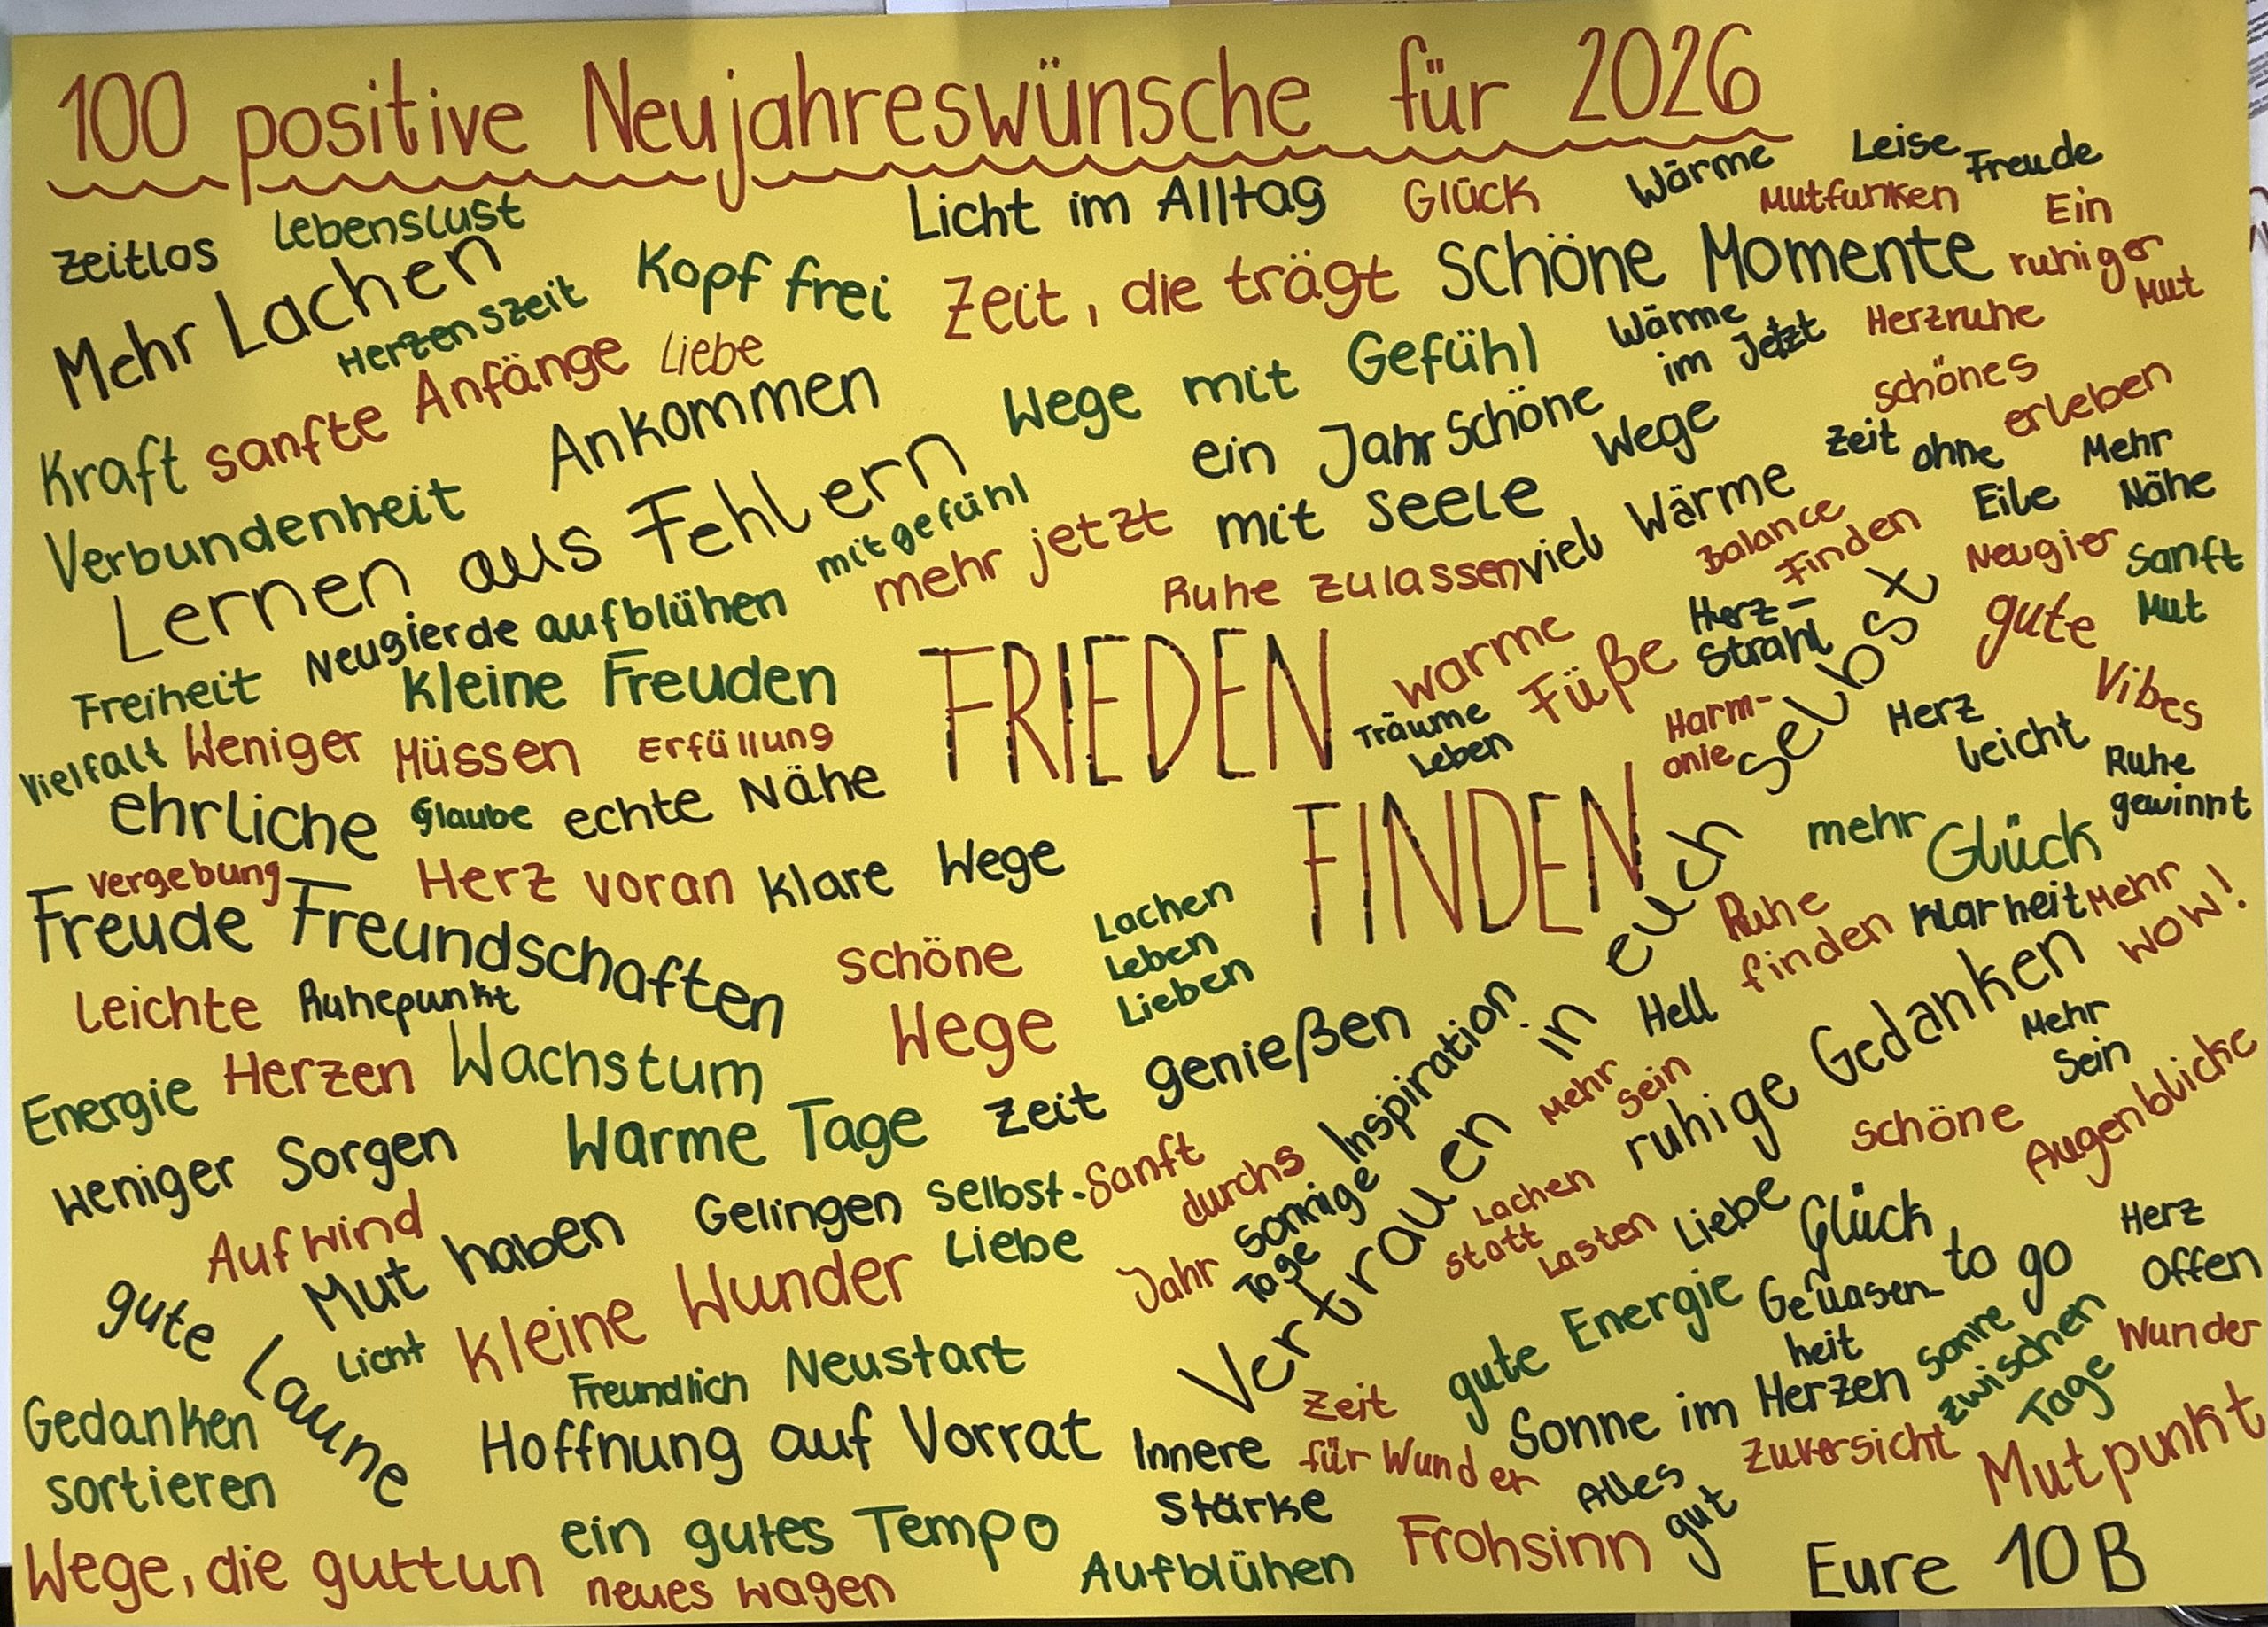 100 positive Neujahreswünsche für 2026
zeitlos
Lebenslust
Licht im Alltag
Glück
Wärme
Leise
Freude
Mutfunken
Ein
ruhiger
Mut
Mehr Lachen
Herzenszeit
Kopf frei
Zeit, die trägt
Schöne Momente
Kraft
sanfte Anfänge
Liebe
Wege mit Gefühl
Wärme
im Jetzt
Herzruhe
Verbundenheit
Ankommen
ein Jahr
mit Seele
Schöne
Wege
schönes
erleben
Zeit ohne
Eile
Mehr
Nähe
Lernen aus Fehlern
mitgefühl
mehr jetzt
Ruhe zulassen
viel Wärme
Balance
Finden
Neugier
Sanft
Mut
Freiheit
Neugierde
aufblühen
kleine Freuden
FRIEDEN
FINDEN
warme
Füße
Herz-
Strahl
gute
Vibes
Vielfalt
Weniger Müssen
Erfüllung
Träume
Leben
Harm-
onie
Herz
leicht
Ruhe
gewinnt
ehrliche
Freundschaften
Glaube
echte Nähe
mehr
Glück
Vergebung
Freude
Herz voran
klare Wege
Lachen
Leben
Lieben
Ruhe
finden
Klarheit
Mehr
WOW!
leichte
Herzen
Ruhepunkt
schöne
Wege
Hell
Energie
Wachstum
Zeit genießen
Inspiration
Vertrauen in euch selbst
Mehr
sein
ruhige Gedanken
Mehr
Sein
weniger Sorgen
Warme Tage
Sanft
durchs
Jahr
sonnige
Tage
Lachen
statt
Lasten
schöne
Augenblicke
Aufwind
Mut haben
Gelingen
Selbst-
Liebe
Liebe
Glück
to go
Herz
Offen
gute
Laune
Licht
kleine Wunder
gute Energie
Gelassen-
heit
Sonne
zwischen
Tage
Wunder
Freundlich
Neustart
Gedanken
sortieren
Hoffnung auf Vorrat
Innere
Stärke
Zeit
für Wunder
Sonne im Herzen
Zuversicht
Mutpunkt
Alles
gut
Wege, die guttun
ein gutes Tempo
neues wagen
Aufblühen
Frohsinn
Eure 10B